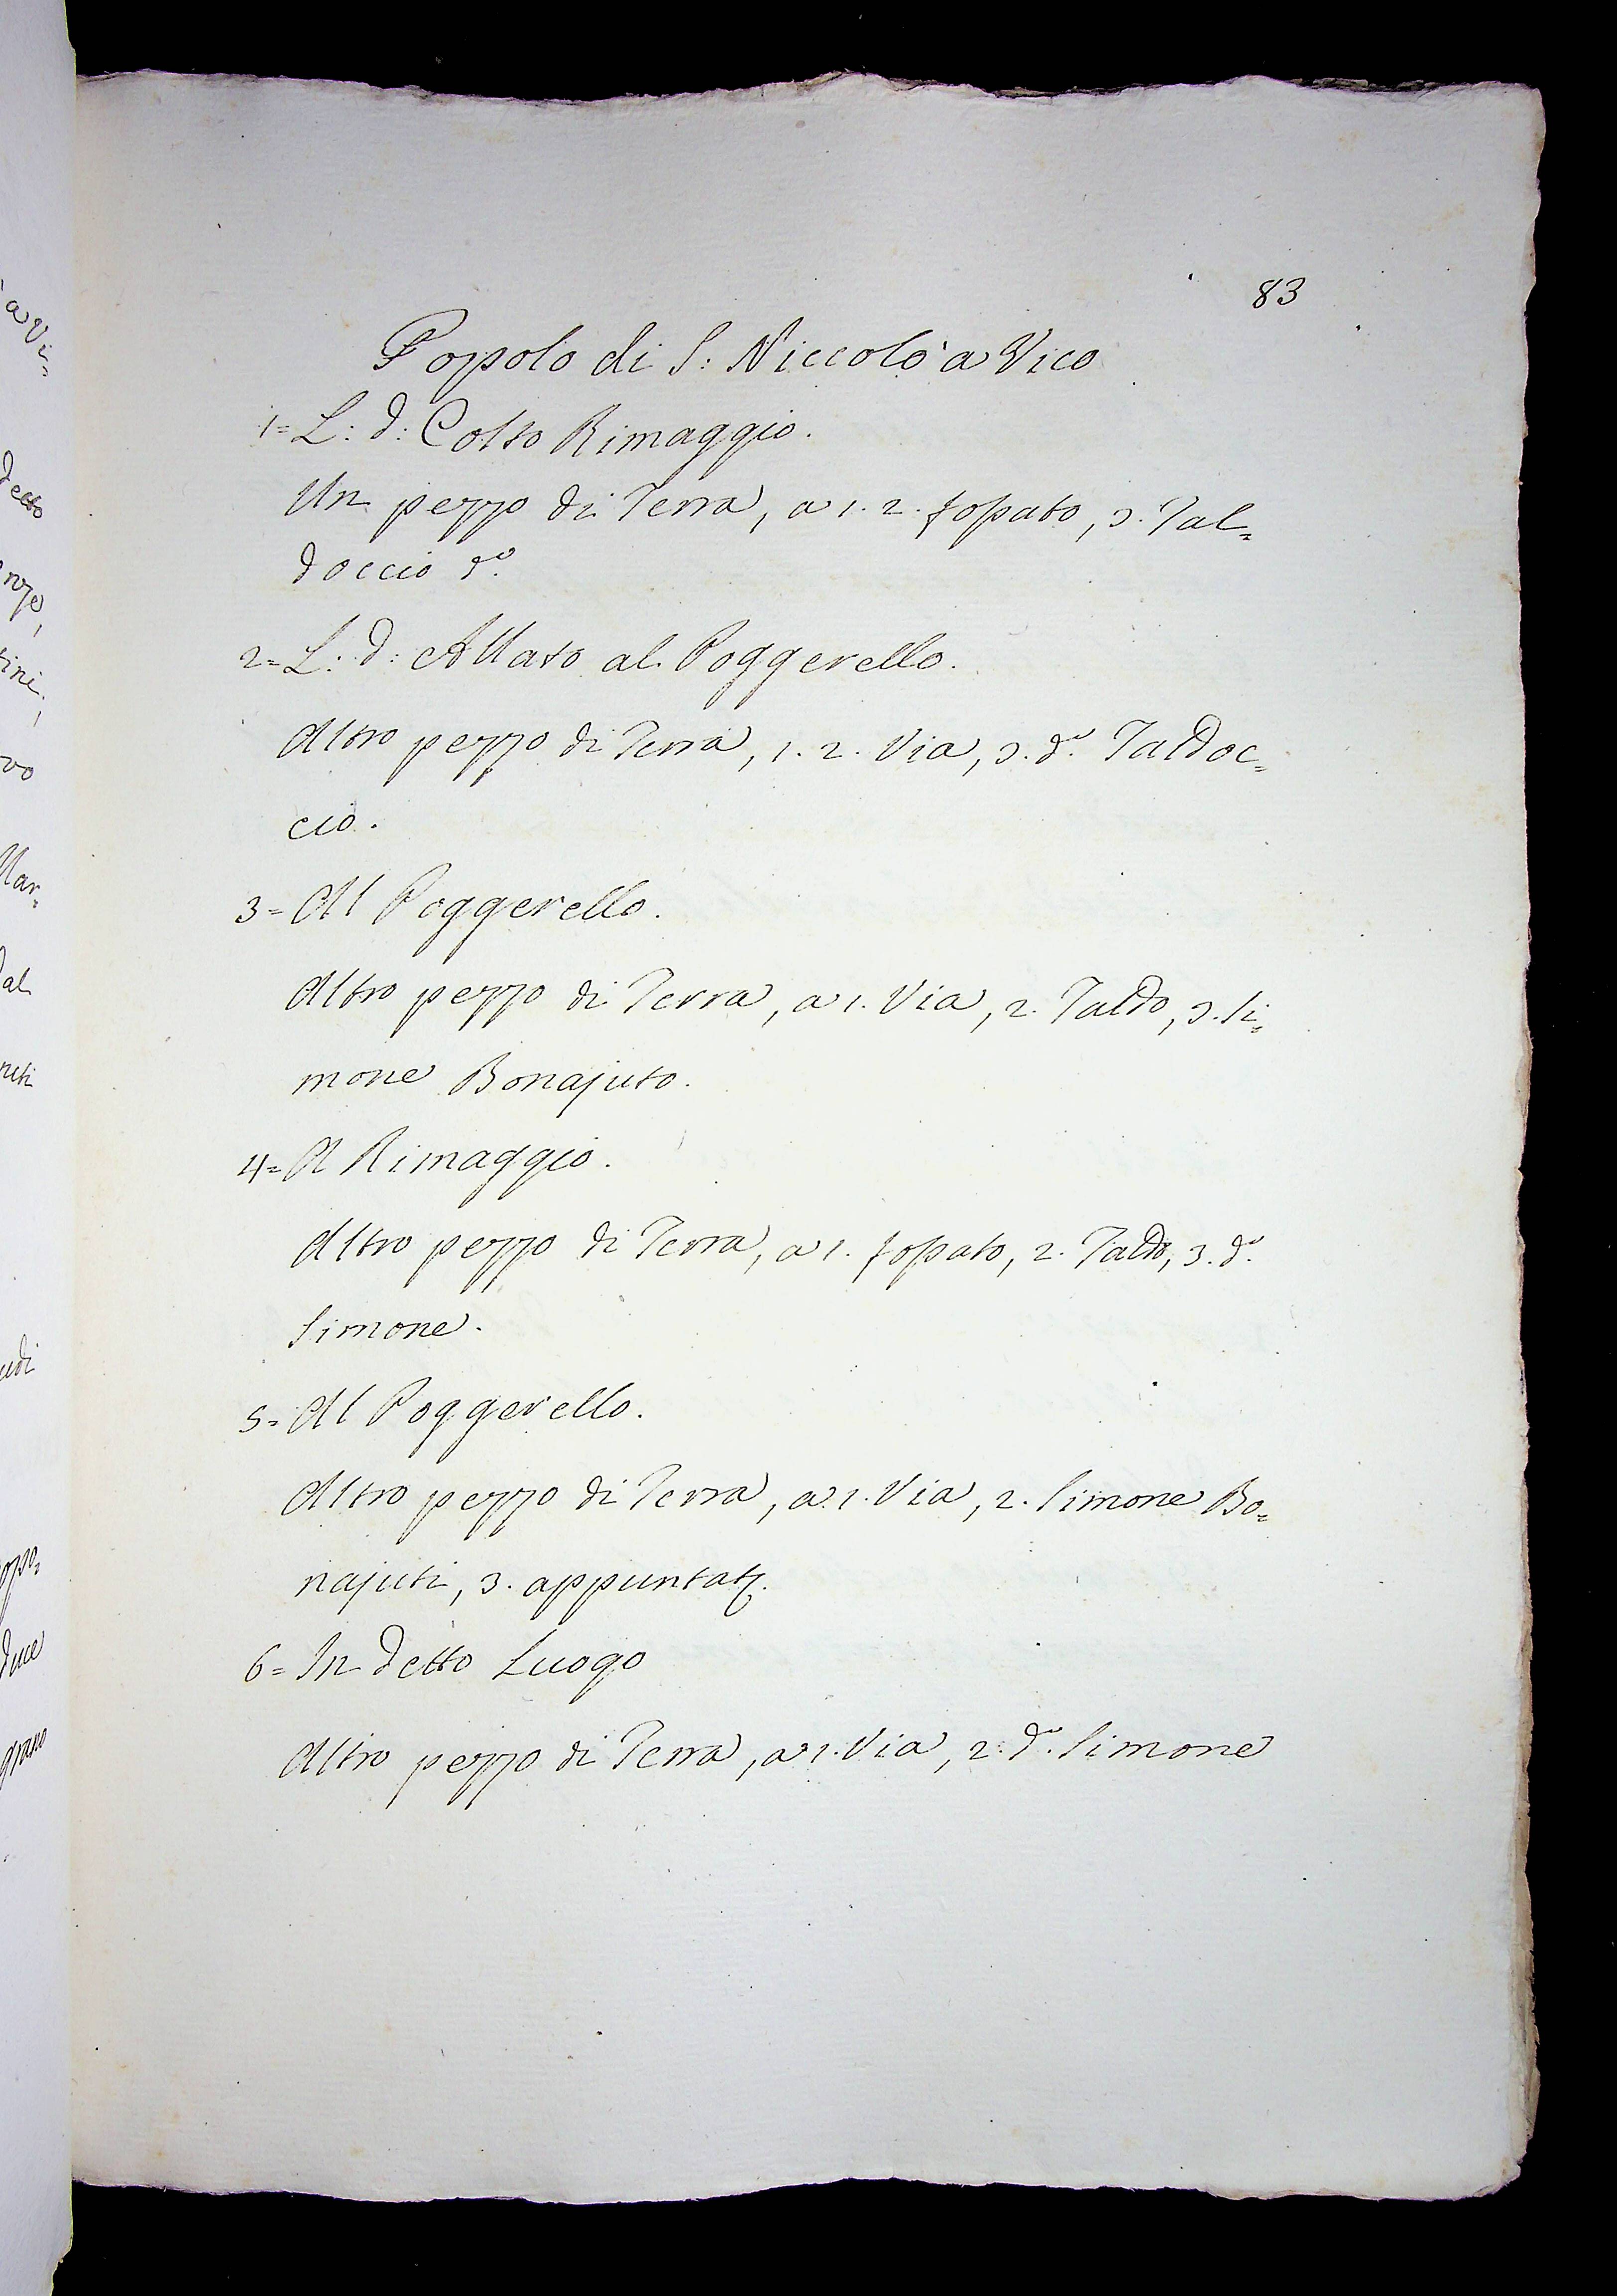 83
Popolo di S: Niccolò a Vico
1= L: d: Colto Rimaggio.
Un pezzo di Terra, a 1. 2. fossato, 3. Tal=
doccio do.
2= L: d: Allato al Poggerello.
Altro pezzo di Terra, 1. 2. Via, 3. do. Taldoc=
cio.
3= Al Poggerello.
Altro pezzo di Terra, a 1. Via, 2. Taldo, 3. Si=
mone Bonajuto.
4= A Rimaggio.
Altro pezzo di Terra, a 1. fossato, 2. Taldo, 3. do.
Simone.
5= Al Poggerello.
Altro pezzo di Terra, a 1. Via, 2. Simone Bo=
najuti, 3. appuntat.
6= In detto Luogo
Altro pezzo di Terra, a 1. Via, 2. do. Simone